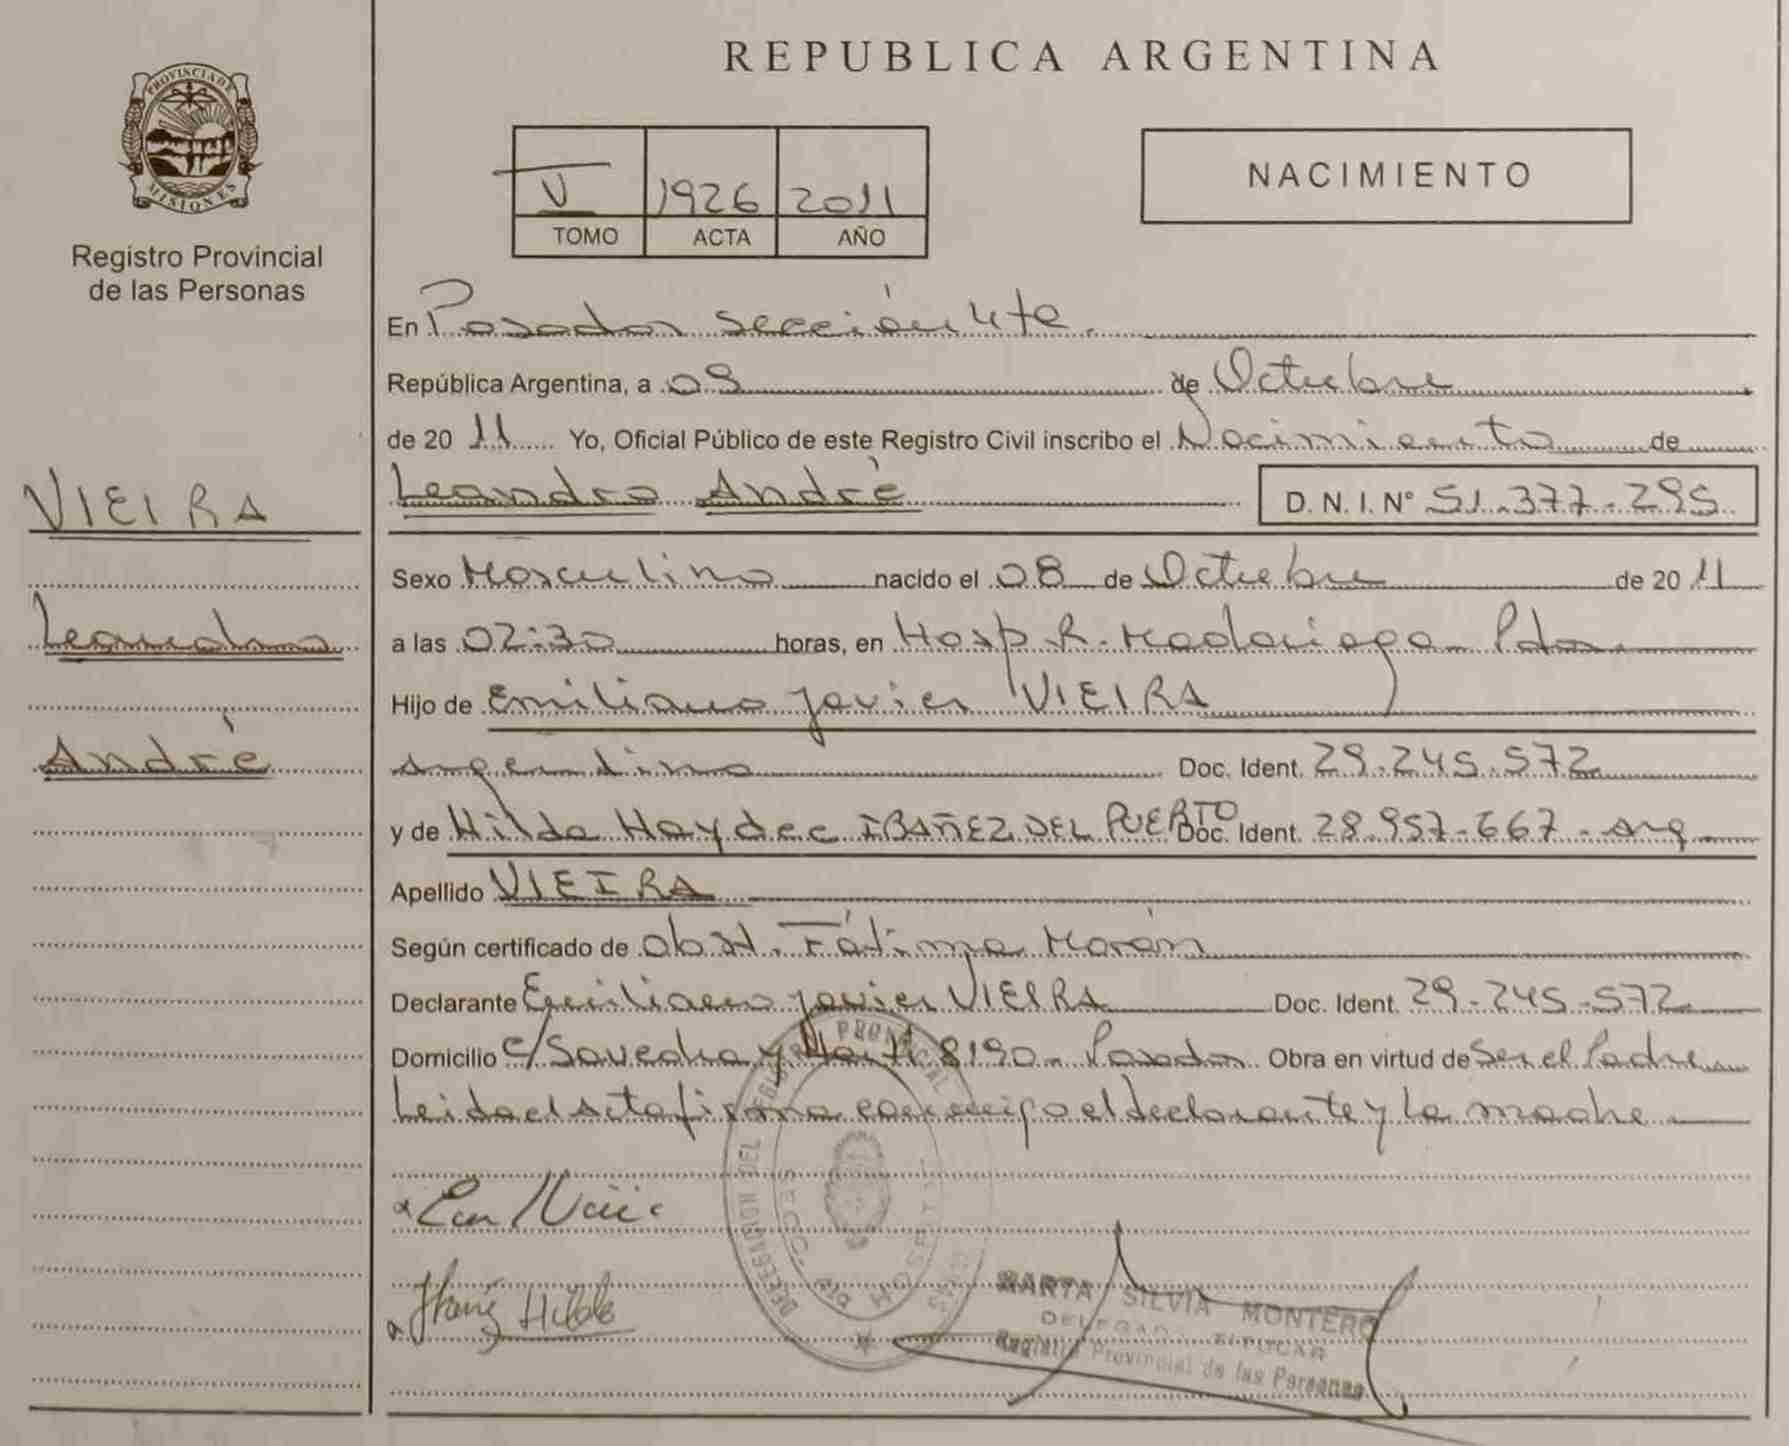 PROVINCIA DE
MISIONES
Registro Provincial
de las Personas
REPUBLICA ARGENTINA
V 1926 2011
TOMO ACTA AÑO
NACIMIENTO
En Posadas sección 4ta.
República Argentina, a 09 de Octubre
de 2011 Yo, Oficial Público de este Registro Civil inscribo el Nacimiento de
Leandro André D. N. I. Nº 51.377.295
VIEIRA
Leandro
André
Sexo Masculino nacido el 08 de Octubre de 2011
a las 02:30 horas, en Hosp R. Madariaga Pdas
Hijo de Emiliano Javier VIEIRA
Argentino Doc. Ident. 29.245.572
y de Hilda Haydee IBAÑEZ DEL PUERTO Doc. Ident. 28.957.667 - Arg
Apellido VIEIRA
Según certificado de Obst. Fátima Morán
Declarante Emiliano Javier VIEIRA Doc. Ident. 29.245.572
Domicilio C/ Savedra y Martí 8190 - Posadas Obra en virtud de Ser el Padre
Leída el Acta firma conmigo el declarante y la madre
Hilda
MARTA SILVIA MONTERO
DELEGADA TITULAR
Registro Provincial de las Personas